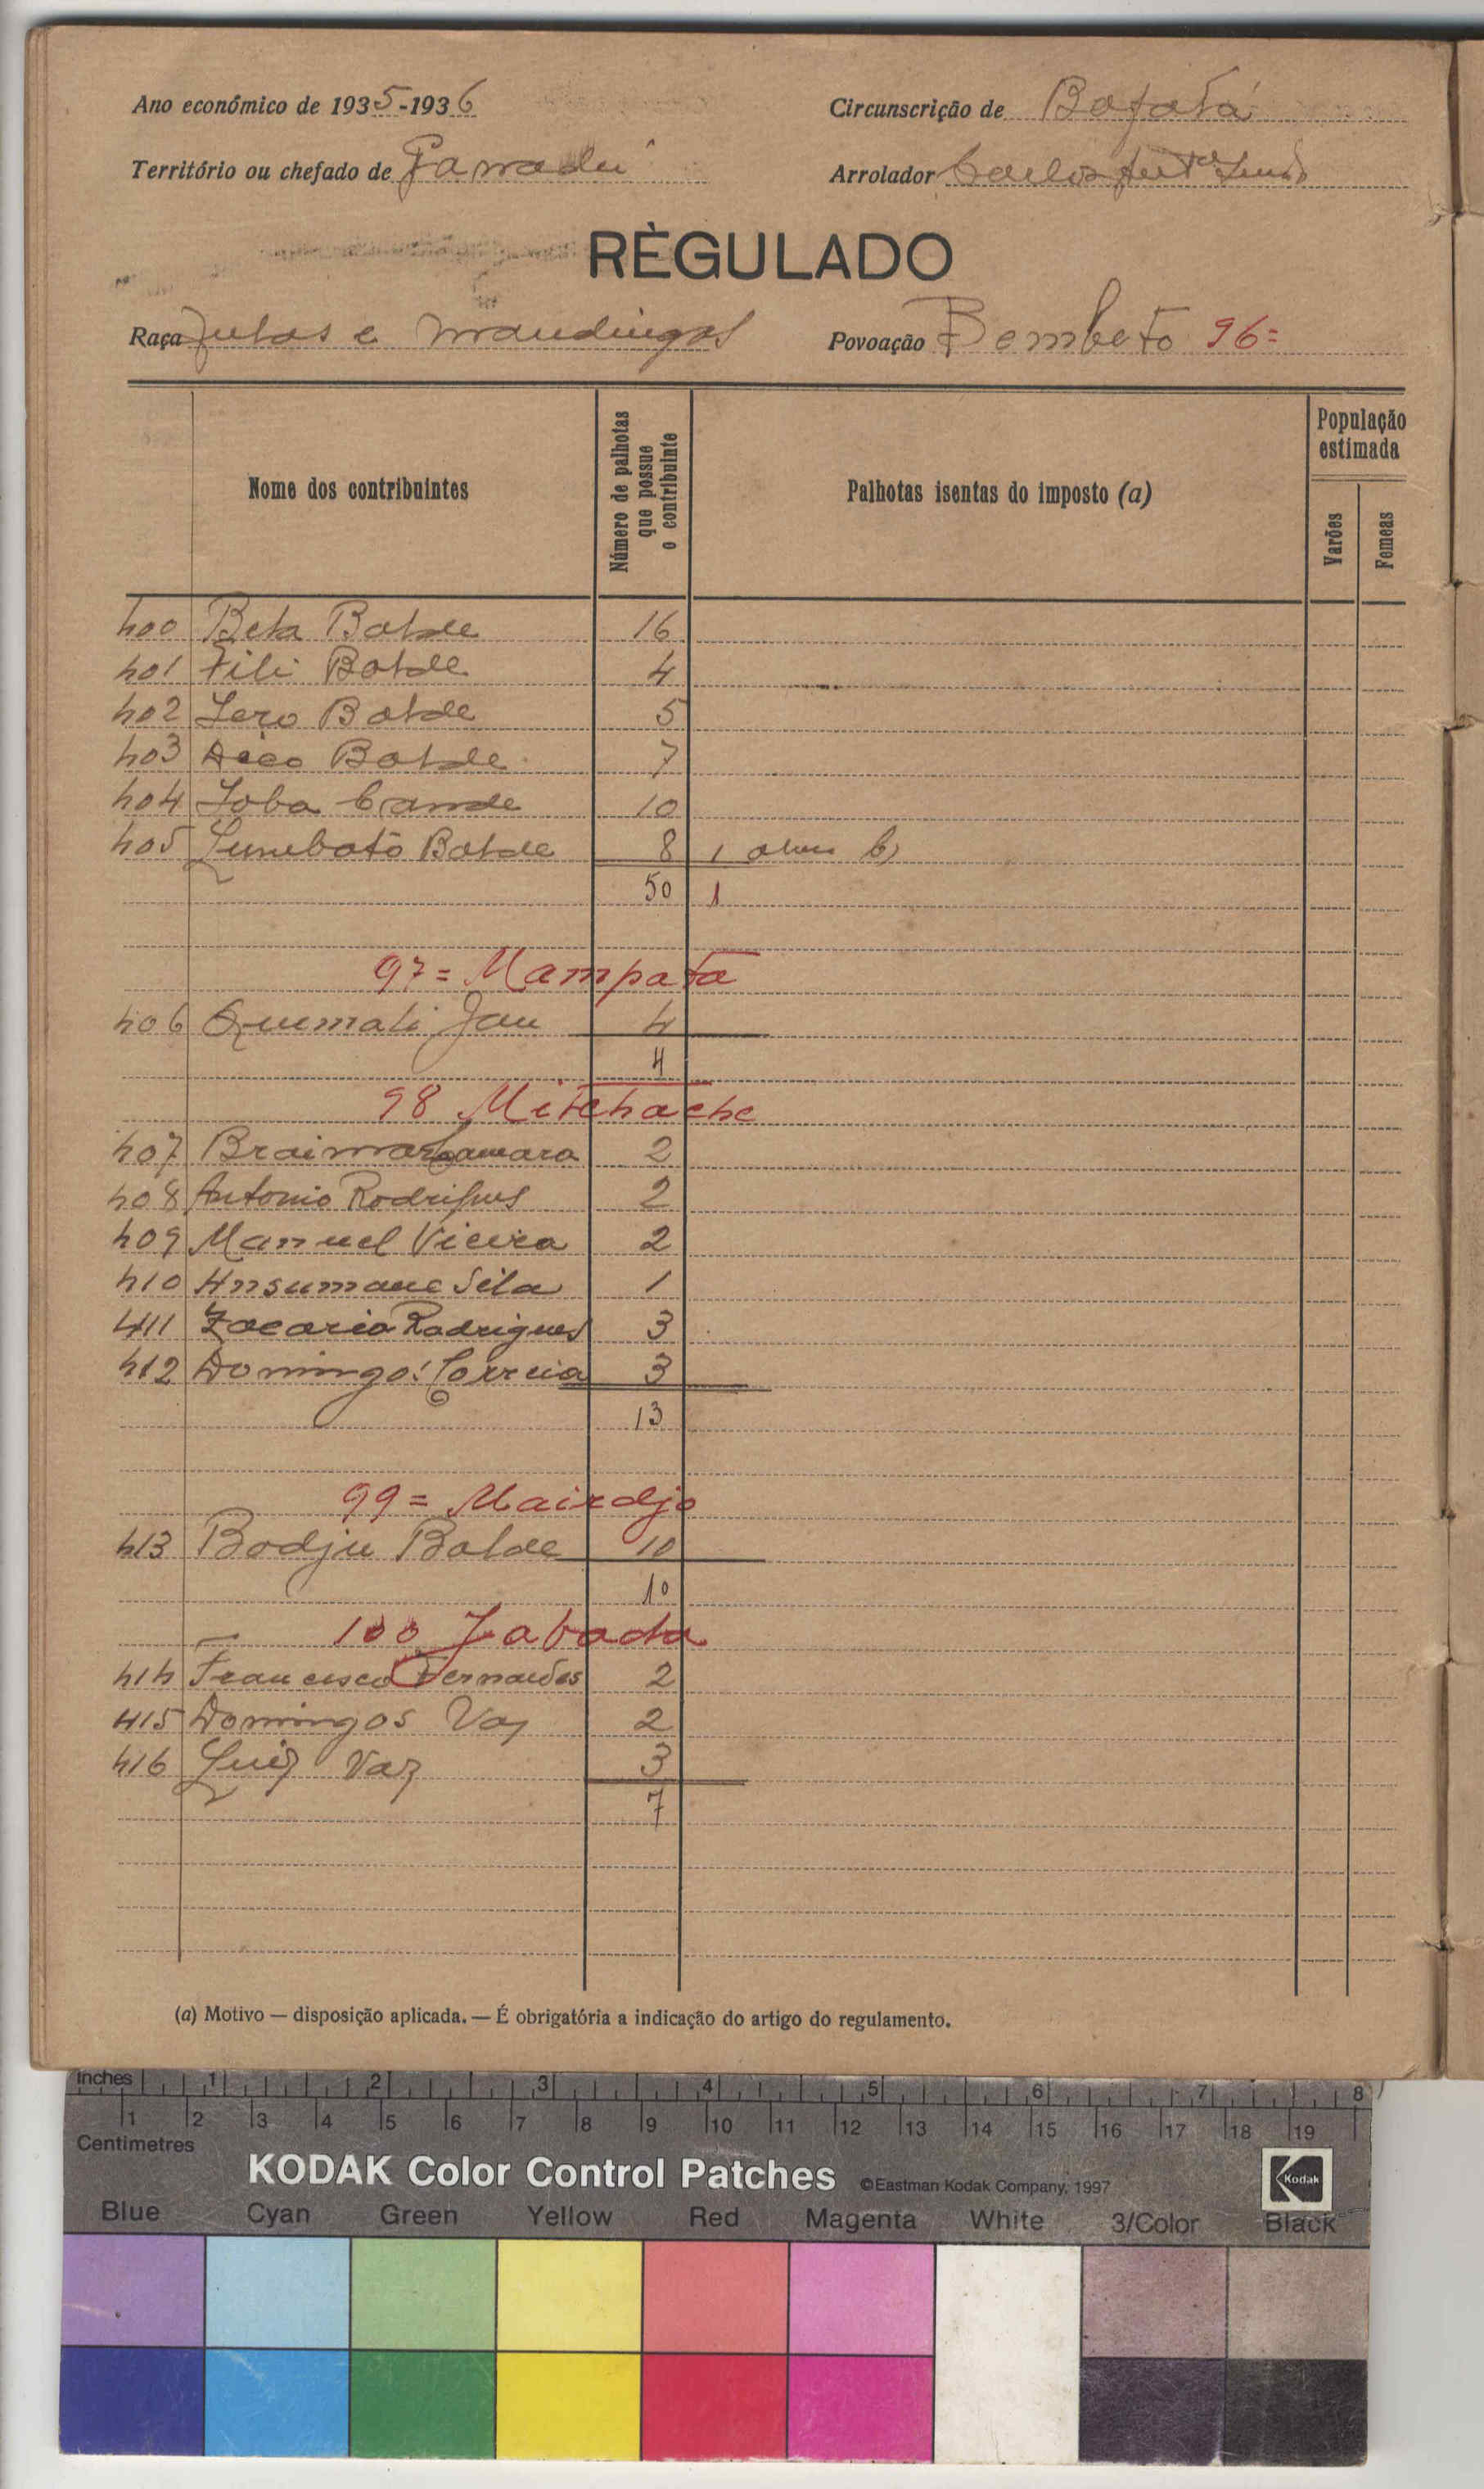 Ano económico de 1935-1936
Circunscrição de Bafatá
Território ou chefado de
Arrolador Carlos
RÈGULADO
Raça Fulas e Mandingas
Povoação Bembeto 96=
Nome dos contribuintes
Número de palhotas que possue o contribuinte
Palhotas isentas do imposto (a)
População estimada
Varões
Femeas
400 Beta Balde 16
401 Fili Balde 4
402 Sero Balde 5
403 Balde 7
404 Joba Cande 10
405 Balde 8 1
50 1
97= Mampata
406 Quemali Jau 4
4
98 Mitchache
407 Braima Camara 2
408 Antonio Rodrigues 2
409 Manuel Vieira 2
410 Ansumane Sila 1
411 Zacaria Rodrigues 3
412 Domingos Correia 3
13
99= Mairdjo
413 Bodju Balde 10
10
100 Jabada
414 Francisco Fernandes 2
415 Domingos Vaz 2
416 Luiz Vaz 3
7
(a) Motivo — disposição aplicada. — É obrigatória a indicação do artigo do regulamento.
Inches 1 2 3 4 5 6 7 8
1 2 3 4 5 6 7 8 9 10 11 12 13 14 15 16 17 18 19
Centimetres
KODAK Color Control Patches ©Eastman Kodak Company, 1997 Kodak
Blue Cyan Green Yellow Red Magenta White 3/Color Black